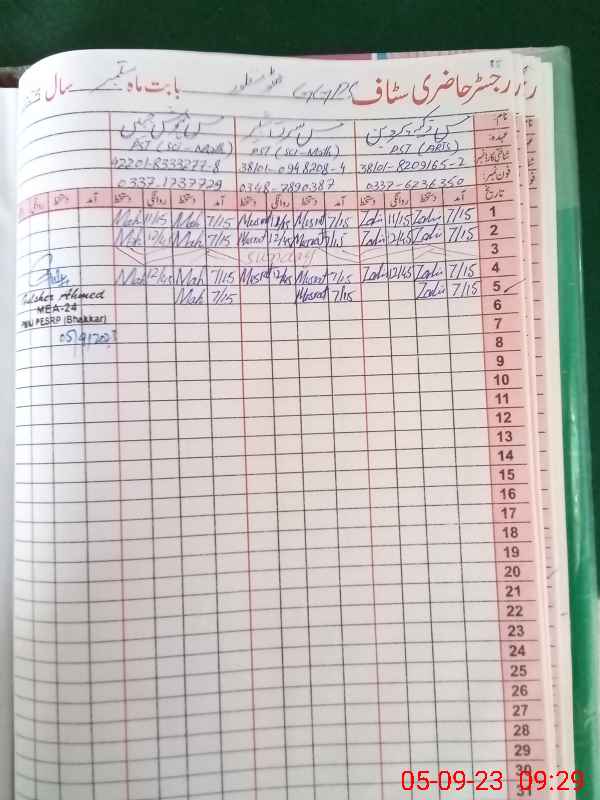 رجسٹر حاضری سٹاف GGPS بابت ماہ ستمبر سال
نام
عہدہ PST (ARTS) PST (Sci-Math) PST (Sci-Math)
شناختی کارڈ نمبر 38101-8209165-2 38101-0948208-4 42201-8333277-8
فون نمبر 0337-6236350 0348-7890387 0337-1737729
تاریخ آمد دستخط روانگی دستخط آمد دستخط روانگی دستخط آمد دستخط روانگی دستخط آمد دستخط روانگی
1 7/15 11/15 7/15 Musrat 12/45 Musrat 7/15 Mah 11/15 Mah
2 7/15 12/45 7/15 Musrat 12/45 Musrat 7/15 Mah 12/45 Mah
3 Sunday
4 7/15 12/45 7/15 Musrat 12/45 Musrat 7/15 Mah 12/45 Mah
5 7/15 7/15 Musrat 7/15 Mah
Ahmed
MEA-24
PESRP (Bhakkar)
05/9/2023
6
7
8
9
10
11
12
13
14
15
16
17
18
19
20
21
22
23
24
25
26
27
28
29
30
31
05-09-23 09:29